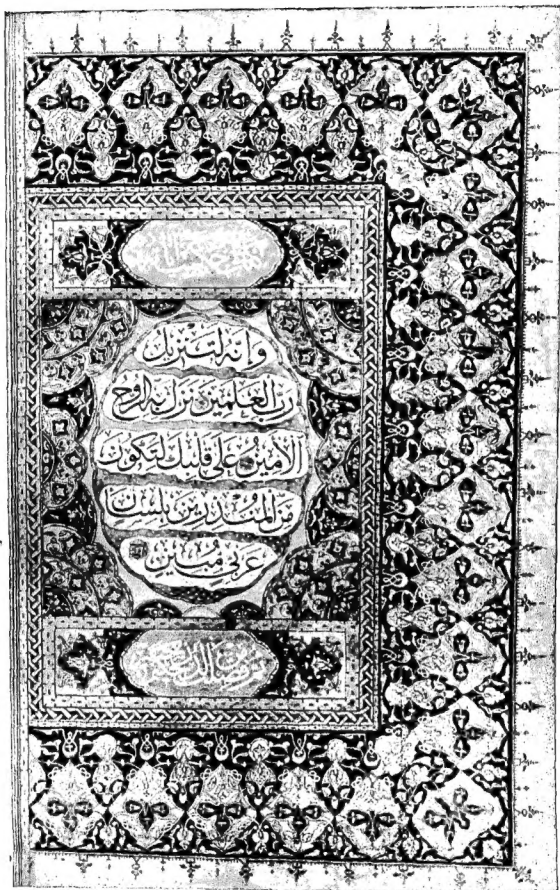 وانه لتنزيل
رب العلمين نزل به الروح
الامين على قلبك لتكون
من المنذرين بلسان
عربي مبين